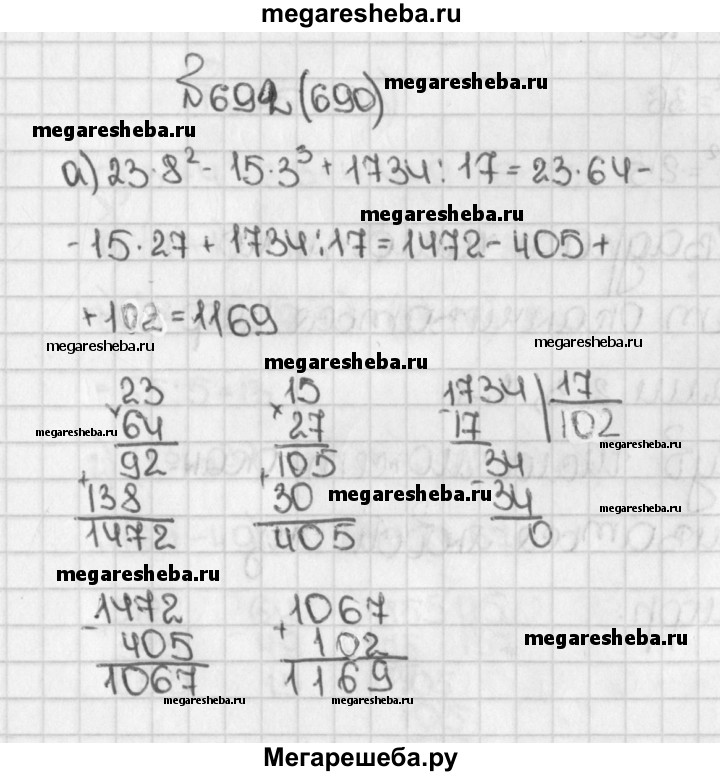 megaresheba.ru
№692 (690) megaresheba.ru
megaresheba.ru
а) 23·8² - 15·3³ + 1734:17 = 23·64-
megaresheba.ru
-15·27 + 1734:17 = 1472 - 405 +
+102 = 1169
megaresheba.ru megaresheba.ru
megaresheba.ru
23 15 1734 17
× 64 × 27 - 17 102
megaresheba.ru megaresheba.ru
92 105 34
+ 138 + 30 megaresheba.ru - 34 megaresheba.ru
1472 405 0
megaresheba.ru
1472 1067
- 405 + 102 megaresheba.ru
1067 1169
megaresheba.ru megaresheba.ru
Мегарешеба.ру